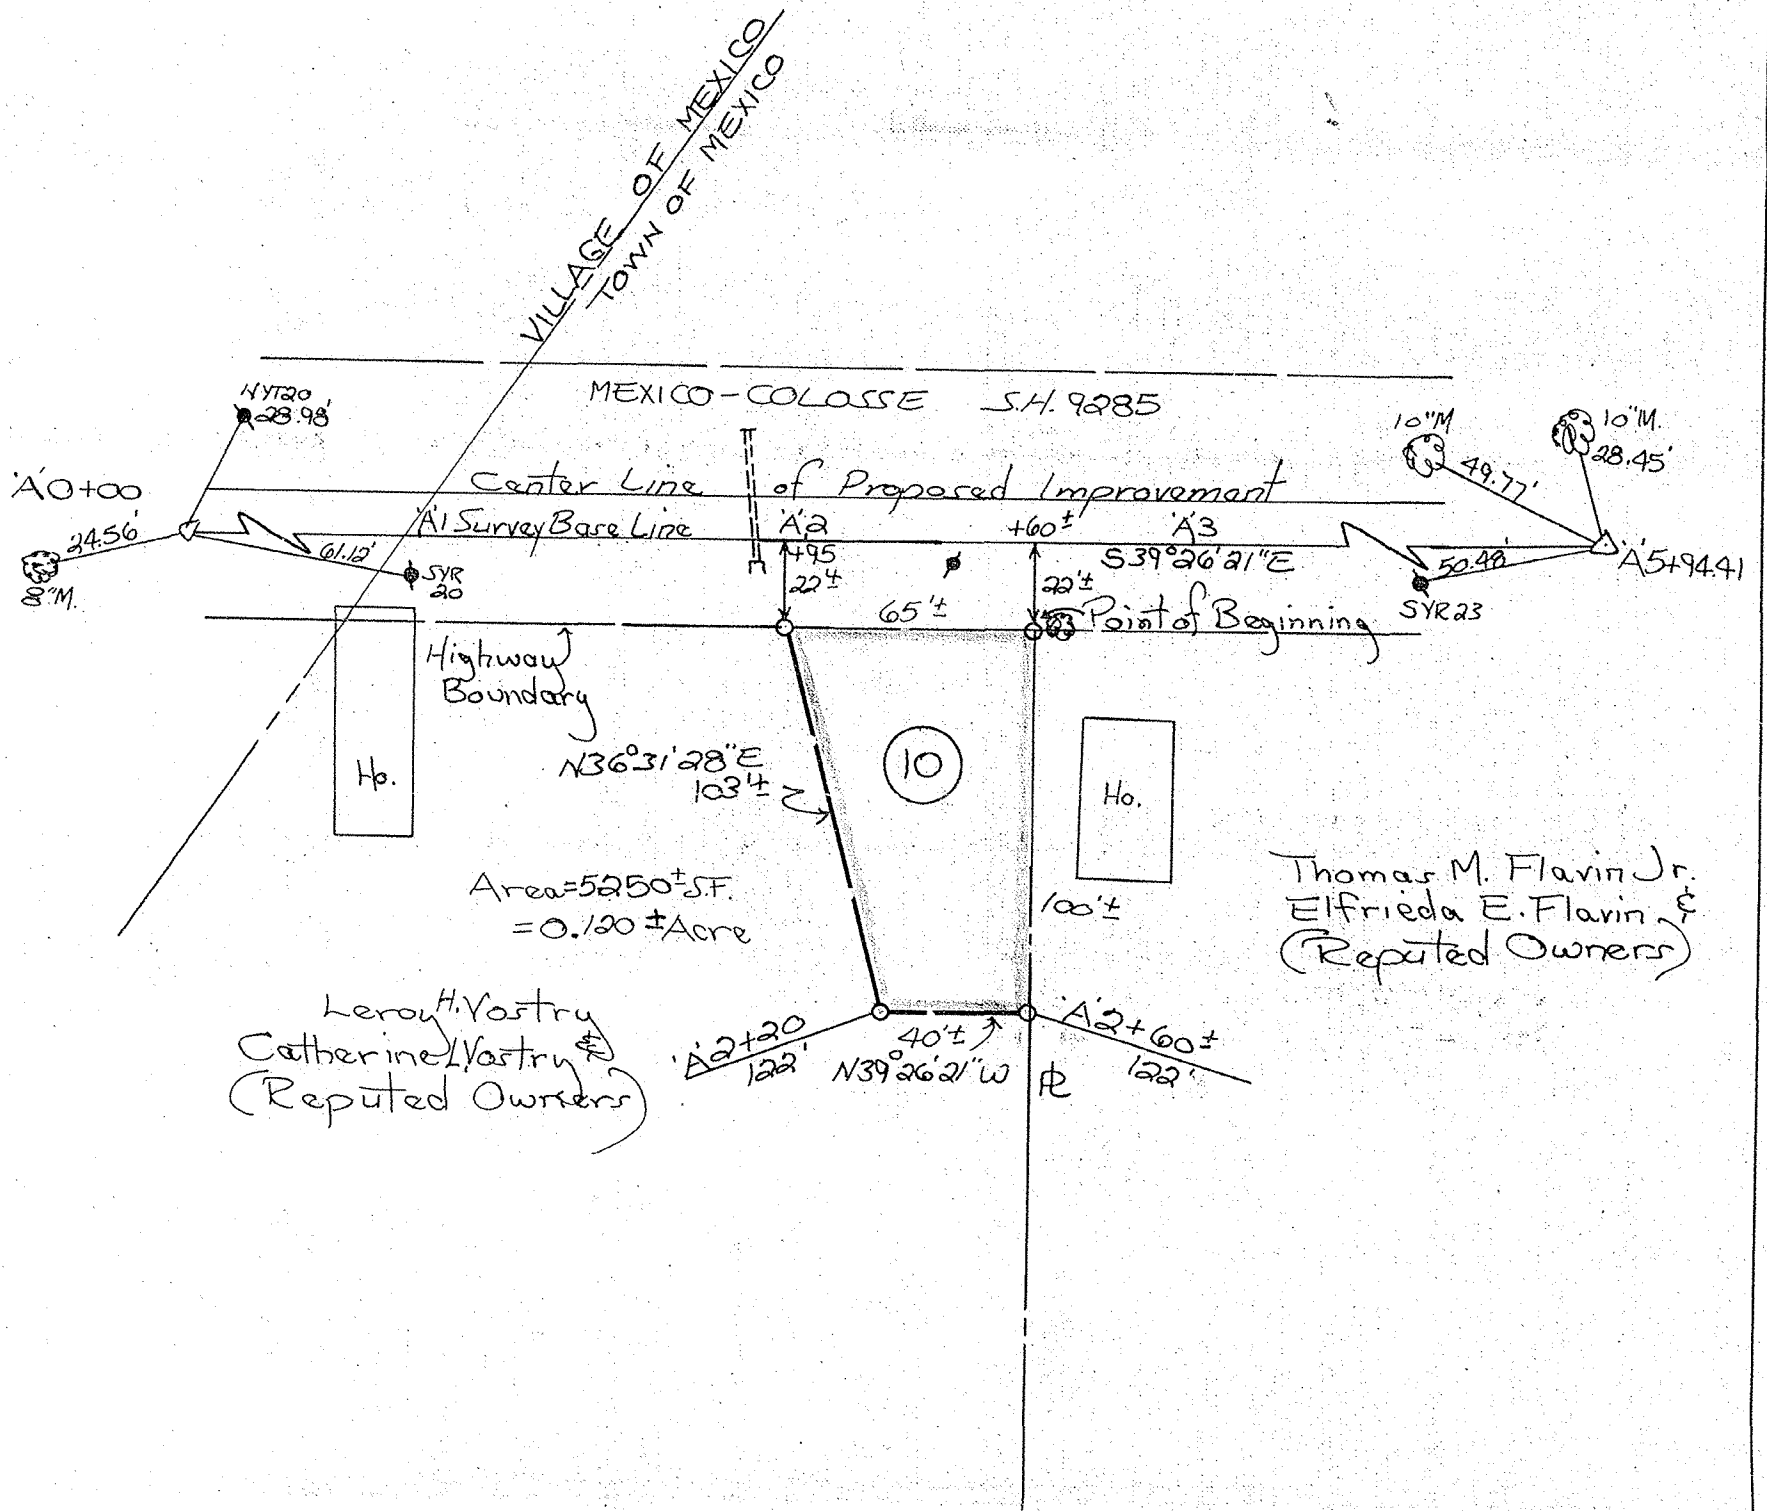 VILLAGE OF MEXICO
TOWN OF MEXICO
MEXICO-COLOSSE S.H. 9285
NYT20
28.98'
10"M
10"M.
28.45'
49.77'
'A'0+00
Center Line of Proposed Improvement
'A'1 Survey Base Line
'A'2
+60±
'A'3
24.56'
8"M.
61.12'
SYR
20
+95
22'±
22'±
S39°26'21"E
50.48'
'A'5+94.41
SYR 23
65'±
Point of Beginning
Highway
Boundary
N36°31'28"E
103'±
10
Ho.
Ho.
Area=5250±S.F.
=0.120±Acre
100'±
Thomas M. Flavin Jr.
Elfrieda E. Flavin &
(Reputed Owners)
Leroy H. Vostry
Catherine L. Vostry &
(Reputed Owners)
'A'2+20
122'
40'±
N39°26'21"W
'A'2+60±
122'
PL